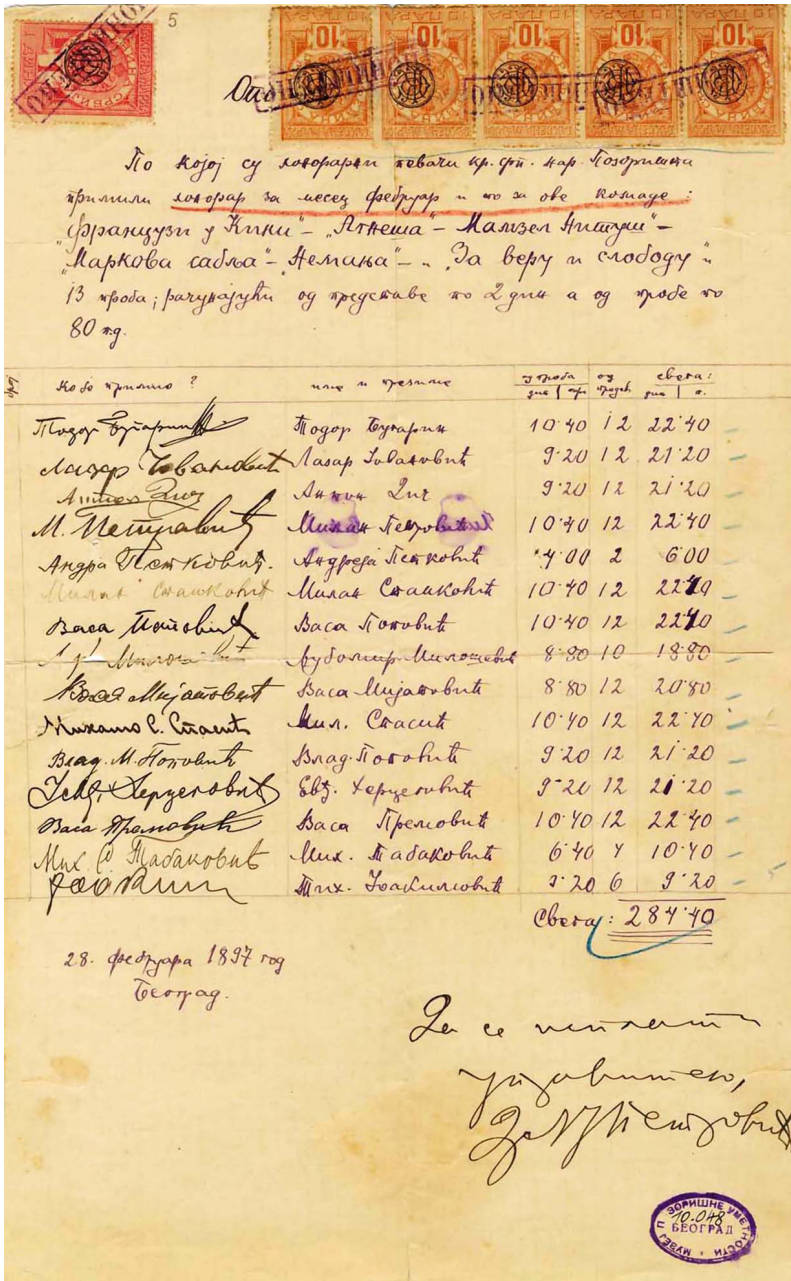 5
10 10 10 10 10
По којој су хонорарни певачи кр. срп. нар. Позоришта
примили хонорар за месец фебруар и то за ове комаде:
"Французи у Кини" - "Агнеша" - Мамзел Нитуш" -
"Маркова сабља" - "Немања" - "За веру и слободу"
13 проба; рачунајући од представе по 2 дин а од пробе по
80 п.д.
број Ко је примио? име и презиме проба од предст. свега:
Тодор Бугарин Тодор Бугарин 10·40 12 22·40
Лазар Јовановић Лазар Јовановић 9·20 12 21·20
Антон Антон 9·20 12 21·20
М. Петровић Милан Петровић 10·40 12 22·40
Андра Петковић. Андреја Петковић 4·00 2 6·00
Милан Сташковић Милан Сташковић 10·40 12 22·40
Васа Поповић Васа Поповић 10·40 12 22·40
Љубомир Милошевић 8·80 10 18·80
Васа Мијатовић Васа Мијатовић 8·80 12 20·80
Михаило С. Стасић Мил. Стасић 10·40 12 22·40
Влад. М. Поповић Влад. Поповић 9·20 12 21·20
Херцеговић Евђ. Херцеговић 9·20 12 21·20
Васа Премовић Васа Премовић 10·40 12 22·40
Мих. Табаковић Мих. Табаковић 6·40 4 10·40
Тих. Јоакимовић 3·20 6 9·20
Свега: 284·40
28. фебруара 1897 год
Београд.
Да се исплати
управитељ,
Петровић
МУЗЕЈ ПОЗОРИШНЕ УМЕТНОСТИ
10.048
БЕОГРАД